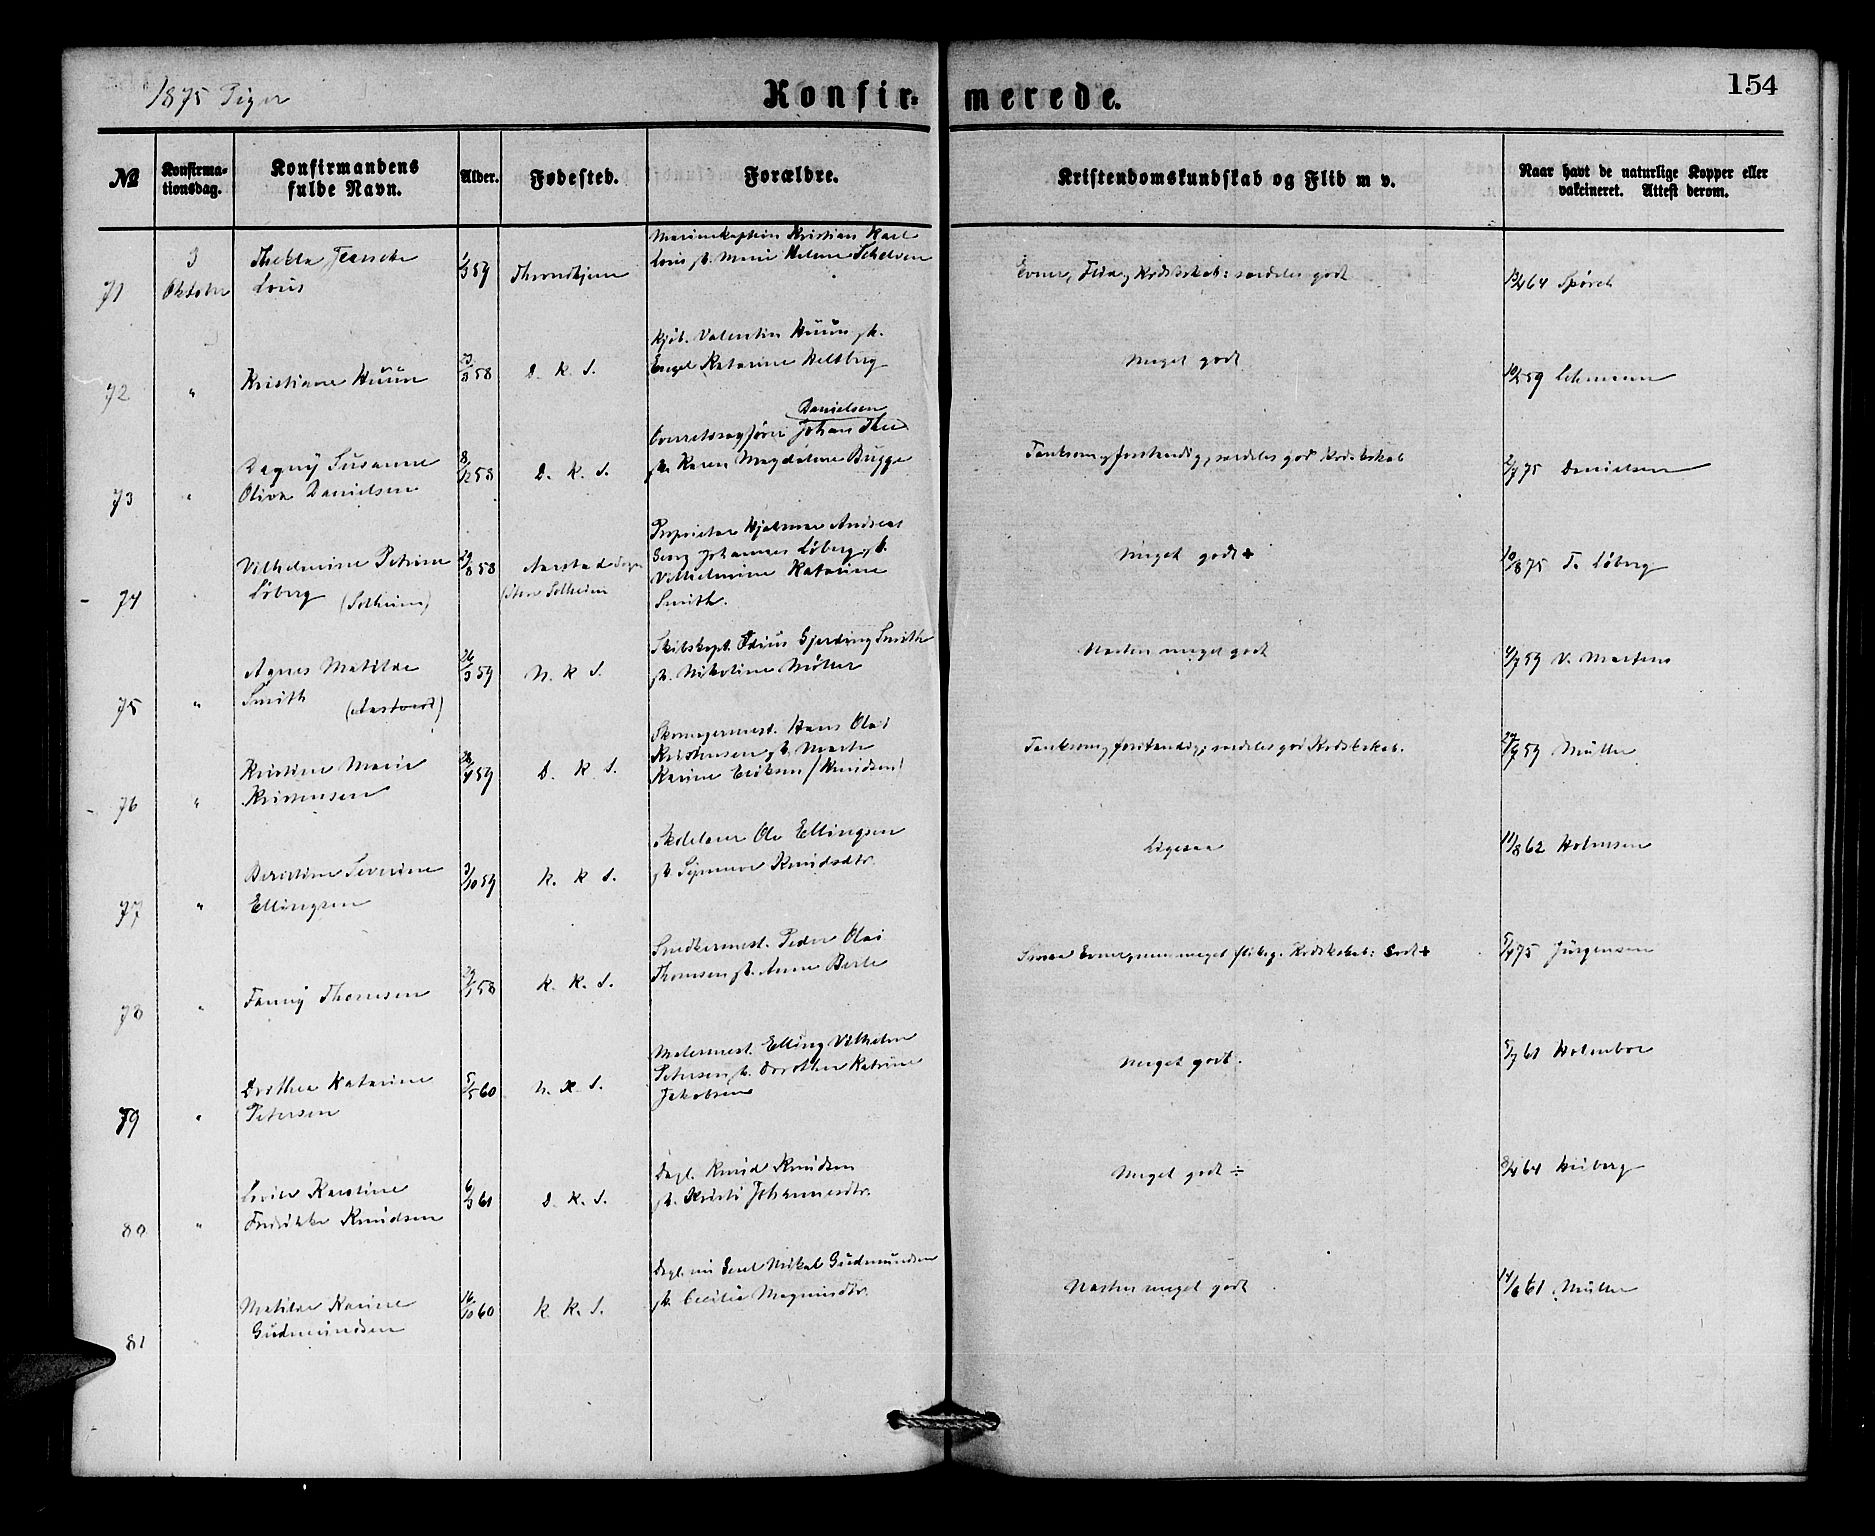 1875 Piger
Konfir- merede.
154
No
Konfirma-
tionsdag.
Konfirmandens
fulde Navn.
Alder.
Fødested.
Forældre.
Kristendomskundskab og Flid m v.
Naar havt de naturlige Kopper eller
vakcineret. Attest derom.
71
3
Oktober
Thekla
Lous
1/3 59
Throndhjem
Marinekaptein Kristian Karl
Lous og h. Marie Helene
Evner, Flid og Kndskab: særdeles godt
64 Spørck
72 "
Kristiane Huun
23/8 58
D. K. S.
Kjøb. Valentin Huun og h.
Engel Katarine Heltberg
Meget godt
10/5 59 Lehmann
73 "
Dagny Susanne
Oliva Danielsen
8/12 58
D. K. S.
Danielsen
Overretssagfører Johan Thu
og h. Karen Magdalene Bugge
Tænksom og forstandig, særdeles god Kndskab
2/7 75 Danielsen
74 "
Vilhelmine Petrine
Løberg (Solheim)
29/8 58
Aarstad Sogn
(Store Solheim
Proprietær Hjalmar Andreas
Georg Johannes Løberg og h.
Vilhelmine Katarine
Smith.
Meget godt +
10/8 75 T. Løberg
75 "
Agnes Matilde
Smith
26/3 59
N. K. S.
Skibskapt. Odius Gjerding Smith
og h. Nikoline Møller
Næsten meget godt
4/7 59 V. Martens
76 "
Kristine Marie
Kristensen
28/4 59
D. K. S.
Skomagermest. Hans Olai
Kristensen og h. Marte
Karine Eriksen (Knudsen)
Tænksom og forstandig, særdeles god Kndskab.
29/9 59 Müller
77 "
Berintine Severine
Ellingsen
3/10 59
K. K. S.
Skolelærer Ole Ellingsen
og h. Synneve Knudsdtr.
Ligesaa
11/8 62 Holmsen
78 "
Fanny Thomsen
29/1 58
K. K. S.
Snedkermest. Peder Olai
Thomsen og h. Anne Berle
Smaa Evner, men meget flittig. Kndskab: Godt +
75 Jürgensen
79 "
Dorthea Katarine
Petersen
5/5 60
N. K. S.
Malermest. Elling Vilhelm
Petersen og h. Dorothea Katrine
Jakobsen
Meget godt.
5/7 61 Holmboe
80 "
Lovise Karoline
Fredrikke Knudsen
6/3 61
D. K. S.
Dagl. Knud Knudsen
og h. Kristi Johannesdtr.
Meget godt ÷
8/4 64 Wiberg
81 "
Matilde Karine
Gudmundsen
16/10 60
K. K. S.
Mikal Gudmundsen
og h. Cecilie Magnusdtr.
Næsten meget godt
14/6 61 Müller